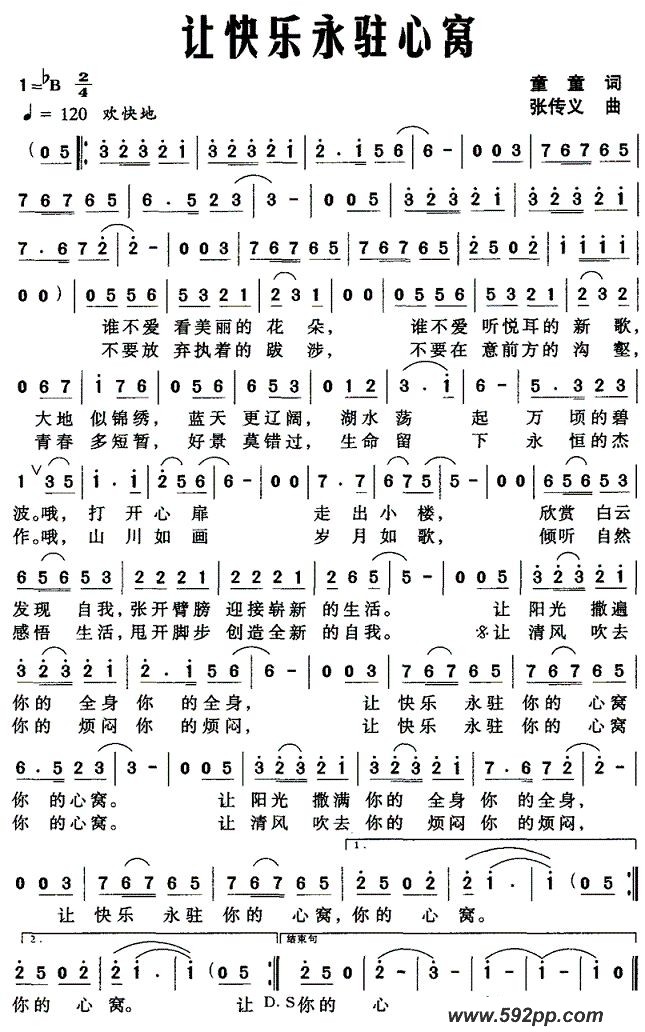 让快乐永驻心窝
1=♭B 2/4
童 童 词
♩= 120 欢快地
张传义 曲
(0 5 ‖: 3 2 3 2 1 | 3 2 3 2 1 | 2 . 1 5 6 | 6 - | 0 0 3 | 7 6 7 6 5 |
7 6 7 6 5 | 6 . 5 2 3 | 3 - | 0 0 5 | 3 2 3 2 1 | 3 2 3 2 1 |
7 . 6 7 2 | 2 - | 0 0 3 | 7 6 7 6 5 | 7 6 7 6 5 | 2 5 0 2 | 1 1 1 1 |
0 0 ) | 0 5 5 6 | 5 3 2 1 | 2 3 1 | 0 0 | 0 5 5 6 | 5 3 2 1 | 2 3 2 |
谁不爱 看美丽的 花 朵， 谁不爱 听悦耳的 新 歌，
不要放 弃执着的 跋 涉， 不要在 意前方的 沟 壑，
0 6 7 | 1 7 6 | 0 5 6 | 7 6 5 | 0 1 2 | 3 . 1 | 6 - | 5 . 3 2 3 |
大地 似锦绣， 蓝天 更辽阔， 湖水 荡 起 万 顷的碧
青春 多短暂， 好景 莫错过， 生命 留 下 永 恒的杰
1 ∨ 3 5 | 1 . 1 | 2 5 6 | 6 - | 0 0 | 7 . 7 | 6 7 5 | 5 - | 0 0 | 6 5 6 5 3 |
波。哦， 打 开 心 扉 走 出 小 楼， 欣赏 白云
作。哦， 山 川 如 画 岁 月 如 歌， 倾听 自然
6 5 6 5 3 | 2 2 2 1 | 2 2 2 1 | 2 6 5 | 5 - | 0 0 5 | 3 2 3 2 1 |
发现 自我，张开臂膀 迎接崭新 的生活。 让 阳光 撒遍
感悟 生活，甩开脚步 创造全新 的自我。 𝄋让 清风 吹去
3 2 3 2 1 | 2 . 1 5 6 | 6 - | 0 0 3 | 7 6 7 6 5 | 7 6 7 6 5 |
你的 全身 你 的全身， 让 快乐 永驻 你的 心窝
你的 烦闷 你 的烦闷， 让 快乐 永驻 你的 心窝
6 . 5 2 3 | 3 - | 0 0 5 | 3 2 3 2 1 | 3 2 3 2 1 | 7 . 6 7 2 | 2 - |
你 的心窝。 让 阳光 撒满 你的 全身 你 的全身，
你 的心窝。 让 清风 吹去 你的 烦闷 你 的烦闷，
1.
0 0 3 | 7 6 7 6 5 | 7 6 7 6 5 | 2 5 0 2 | 2 1 . | 1 ( 0 5 :‖
让 快乐 永驻 你的 心窝，你的 心 窝。
2. 结束句
2 5 0 2 | 2 1 . 1 | 1 ( 0 5 :‖ 2 5 0 2 | 2 - | 1 - | 1 - | 1 0 ‖
你的 心 窝。 让 D.S 你的 心
www.592pp.com